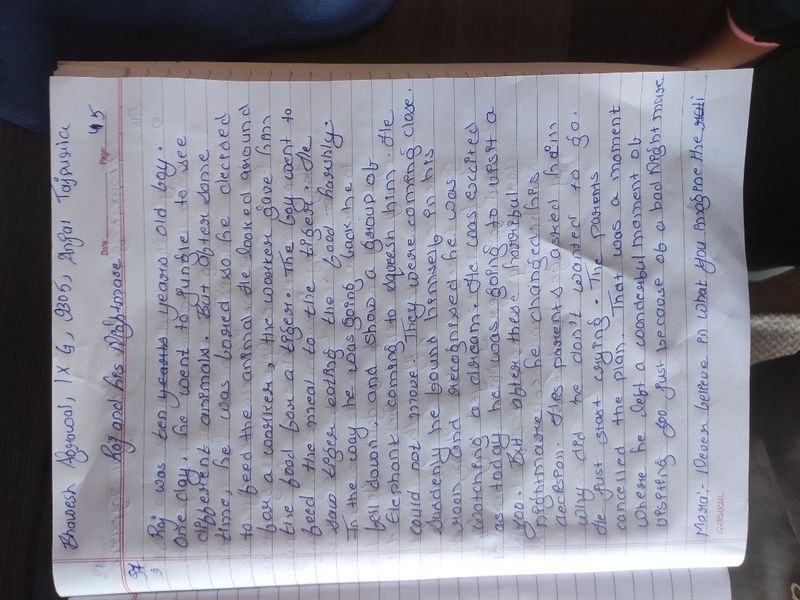 Bhawesh Agrawal, IX G, 9305, Anjal Tajpuria
Date Page 45
Raj and his Nightmare
Raj was ten years years old boy.
One day, he went to jungle to see
different animals. But after some
time, he was bored so he decided
to feed the animal. He looked around
for a worker, the worker gave him
the food for a tiger. The boy went to
feed the meal to the tiger. He
saw tiger eating the food harshly.
In the way he was going back he
fell down, and show a group of
Elephant coming to sqeesh him. He
could not move. They were coming close.
Suddenly he found himself in his
room and recognised he was
watching a dream. He was excited
as today he was going to visit a
zoo. But after these harmful
nightmare he changed his
decision. His parents asked him
why did he don't wanted to go.
He just start crying. The parents
cancelled the plan. That was a moment
where he left a wonderful moment of
visiting zoo just because of a bad Nightmare
Moral:- Never believe in what you imagine the